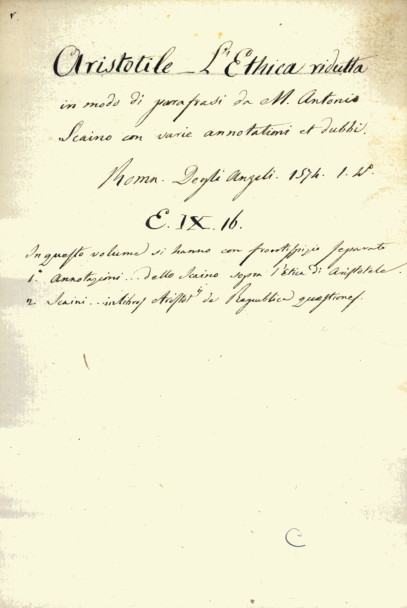 Aristotile _ L'Ethica ridutta
in modo di parafrasi da M. Antonio
Scaino con varie annotationi et dubbi.
Roma. Degli Angeli. 1574. 1. 4º.
E. IX. 16.
In questo volume si hanno con frontispizio separato
1º Annotazioni... dello Scaino sopra l'Etica di Aristotele.
2 Scaini... in libros Aristotis de Republica quaestiones.
C